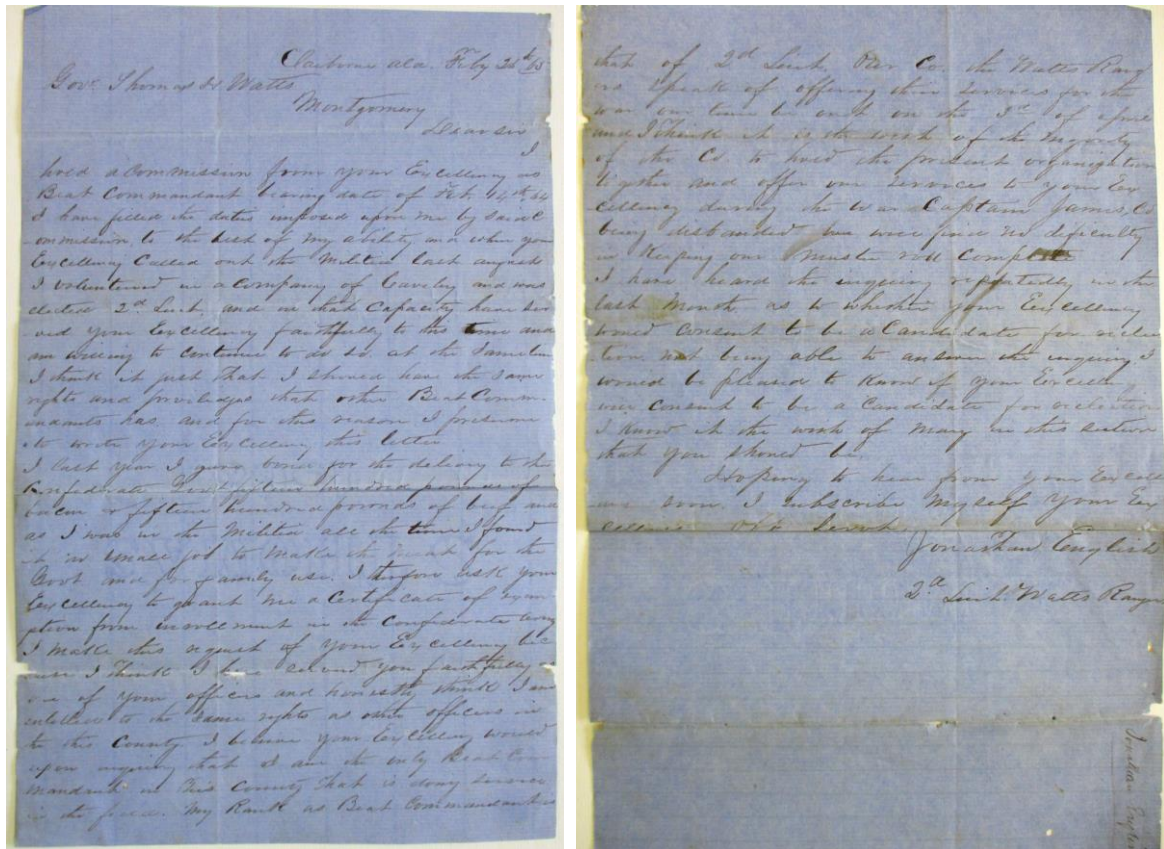 Claiborne Ala. Feby 26th /65
Gov. Thomas H Watts
Montgomery
Dear Sir
I
hold a Commission from your Excellency as
Beat Commandant bearing date of Feb. 14th 64
I have filled the duties imposed upon me by said C
ommission, to the best of my ability and when your
Excellency Called out the Militia last august
I volunteered in a Company of Cavelry and was
elected 2d Lieut and in that Capacity have ser
ved your Excellency faithfully to this time and
am willing to continue to do so. at the same time
I think it just that I should have the same
rights and priviledges that other Beat Comm-
andants has, and for this reason I presume
to write your Excellency this letter
I last year I gave bond for the delivery to the
Confederate Govt fifteen hundred pounds of
bacon & fifteen hundred pounds of beef and
as I was in the Militia all the time I found
it no small job to make the meat for the
Govt and for family use. I therefore ask your
Excellency to grant me a Certificate of exem
ption from enrollment in the Confederate
I make this request of your Excellency bec
ause I think I have served you faithfully as
one of your officers and honestly think I am
entitled to the same rights as other officers in
to this County I your Excellency would
upon inquiry that I am the only Beat Com-
mandant in this County that is doing service
in the field. My Rank as Beat Commandant is
that of 2d Lieut Our Co. the Watts Rang
ers speak of offering their services for the
war our time be out on the 3d of april
and I think it is the wish of the majority
of the Co. to hold the present organization
together and offer our services to your Ex
cellency during the War Captain James, Co
being disbanded we will find no dificulty
in Keeping our muster roll Complete
I have heard the inquiry repeatedly in the
last month as to whether your Excellency
would consent to be a Candidate for reelec
tion not being able to answer the inquiry I
would be pleased to know if your Excellency
will consent to be a Candidate for reelection
I know it the wish of many in this section
that you should be.
Hoping to hear from your Excell
ency soon. I subscribe myself your Ex
cellency Obt Servt
Jonathan English
2d Lieut. Watts Rangers
Jonathan English